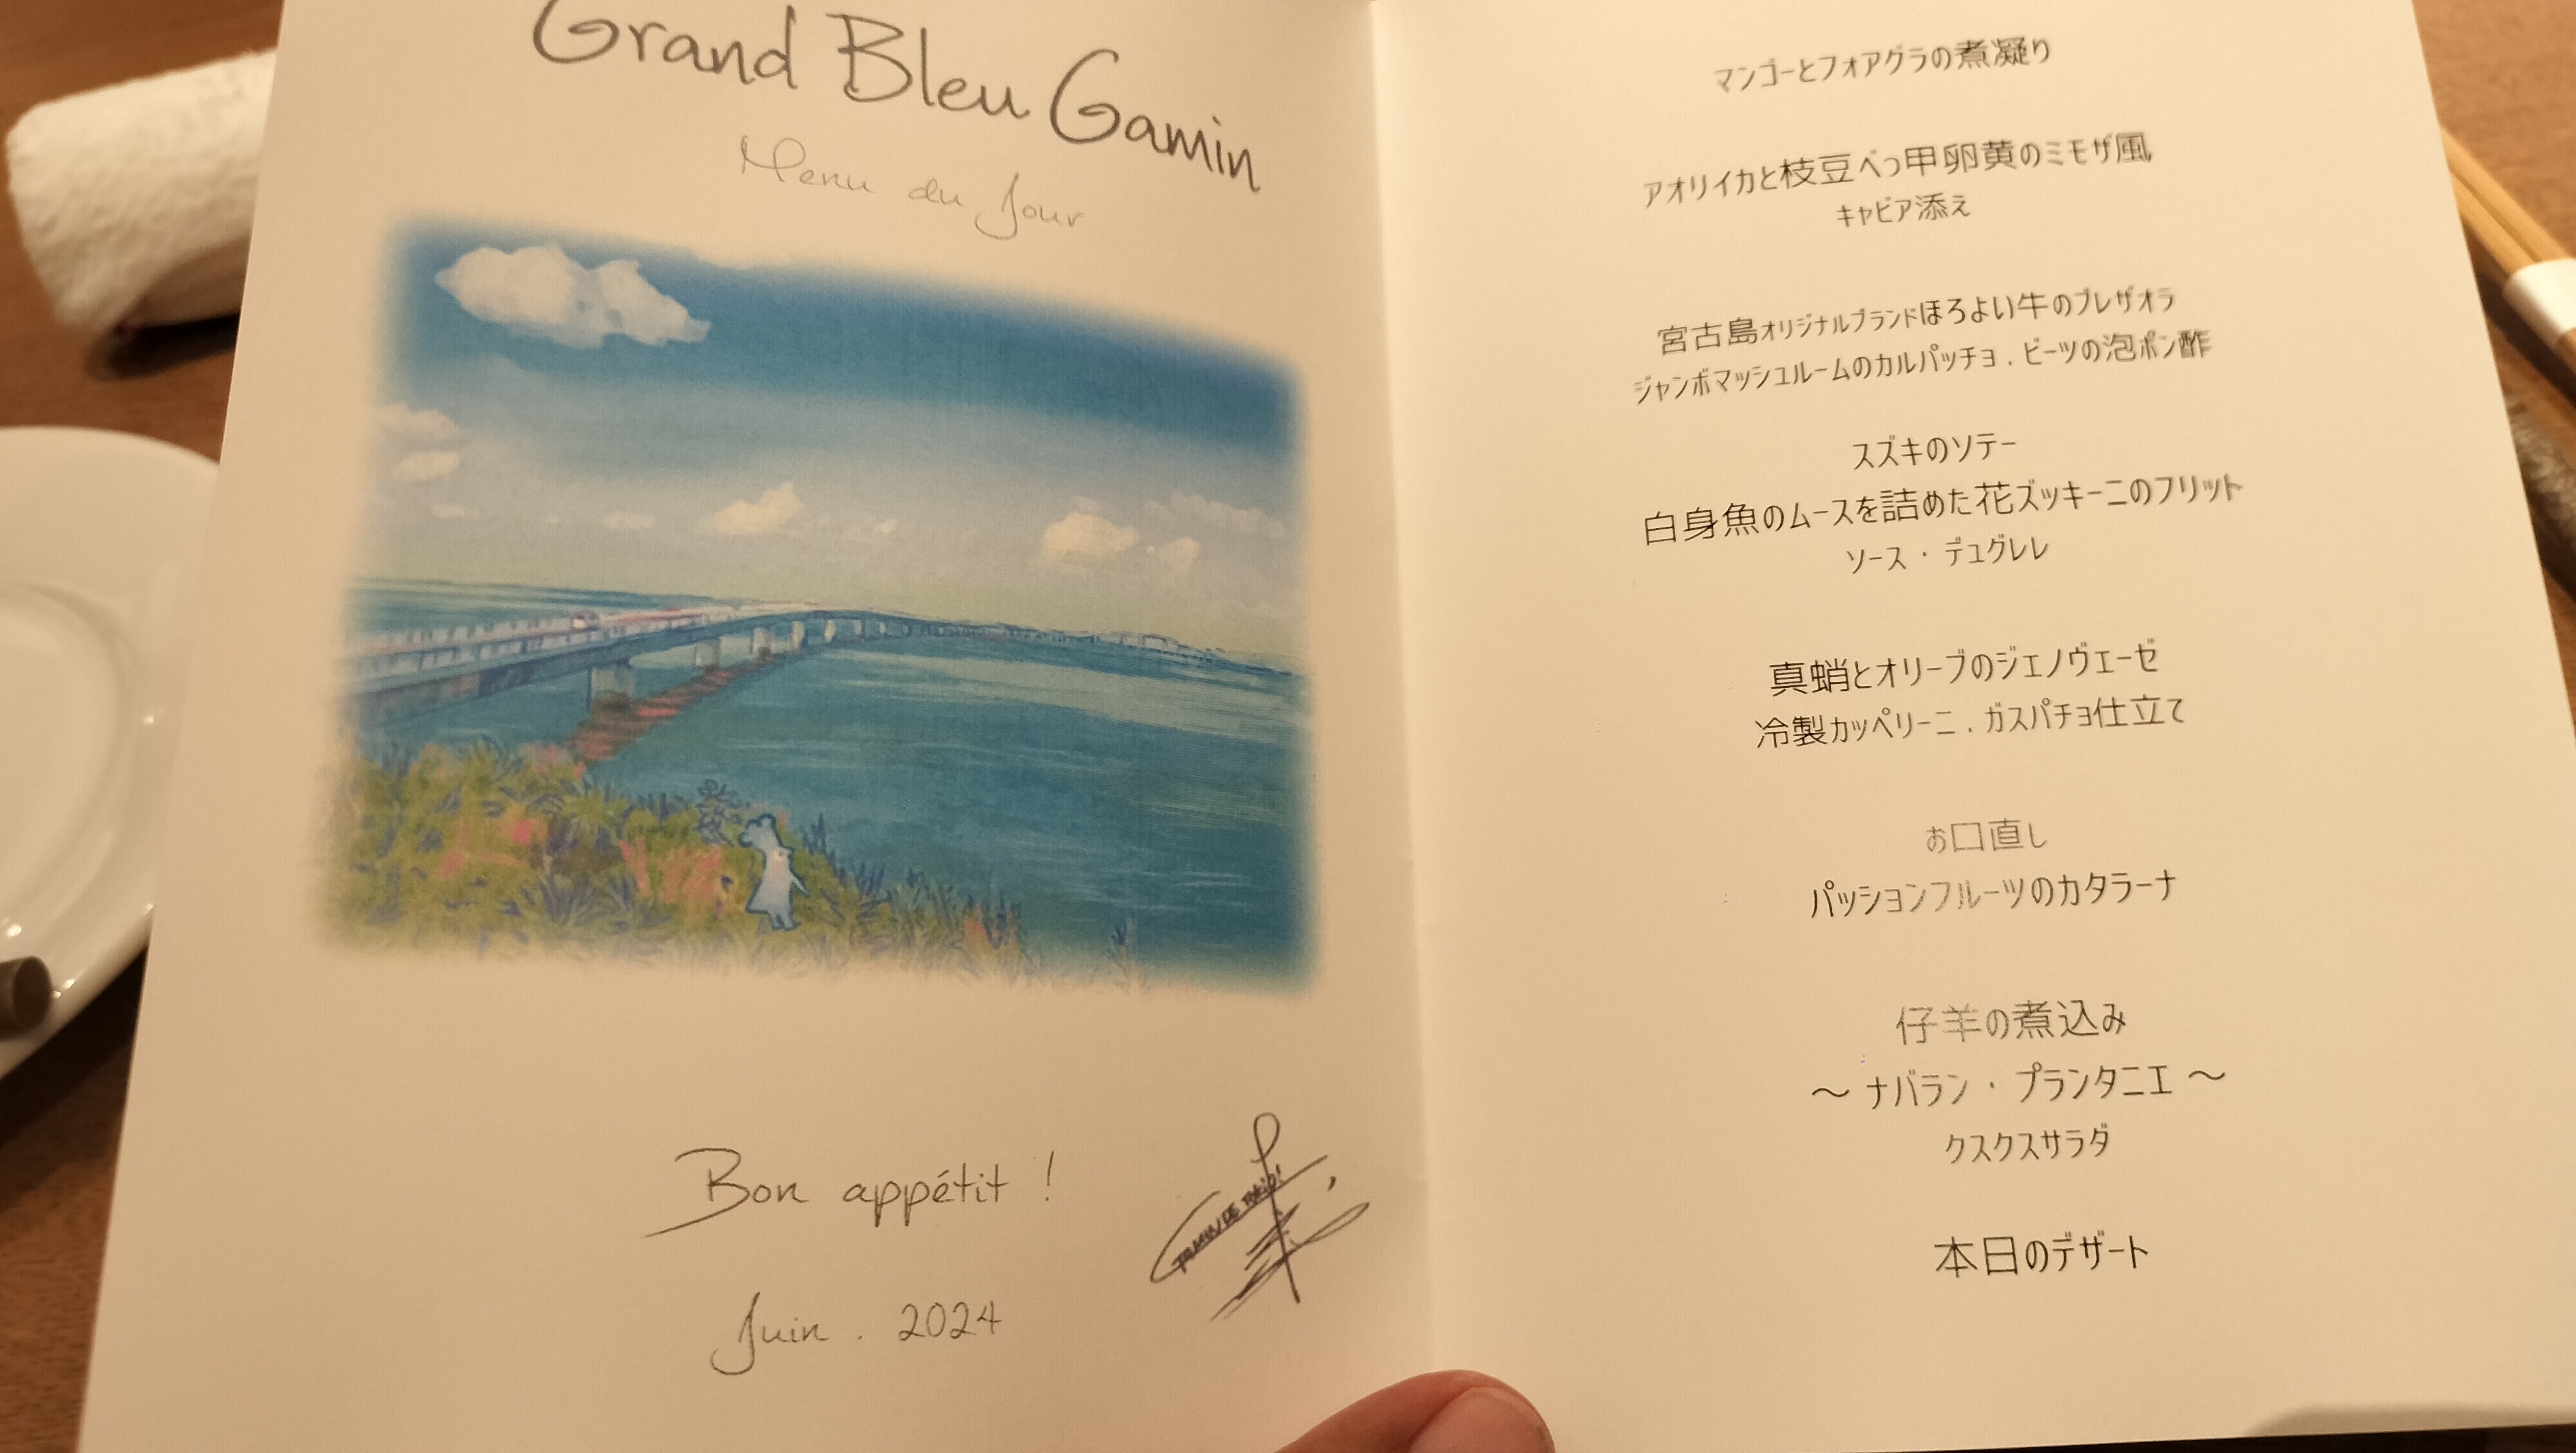 Grand Bleu Gamin
Menu du Jour
Bon appétit !
Juin . 2024
マンゴーとフォアグラの煮凝り
アオリイカと枝豆べっ甲卵黄のミモザ風
キャビア添え
宮古島オリジナルブランドほろよい牛のブレザオラ
ジャンボマッシュルームのカルパッチョ . ビーツの泡ポン酢
スズキのソテー
白身魚のムースを詰めた花ズッキーニのフリット
ソース・デュグレレ
真蛸とオリーブのジェノヴェーゼ
冷製カッペリーニ . ガスパチョ仕立て
お口直し
パッションフルーツのカタラーナ
仔羊の煮込み
～ ナバラン・プランタニエ ～
クスクスサラダ
本日のデザート